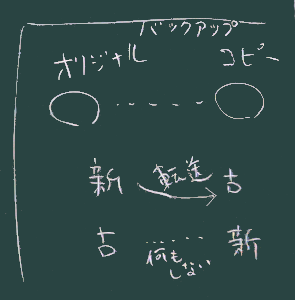 バックアップ
オリジナル コピー
新 転送 古
古 何も 新
しない